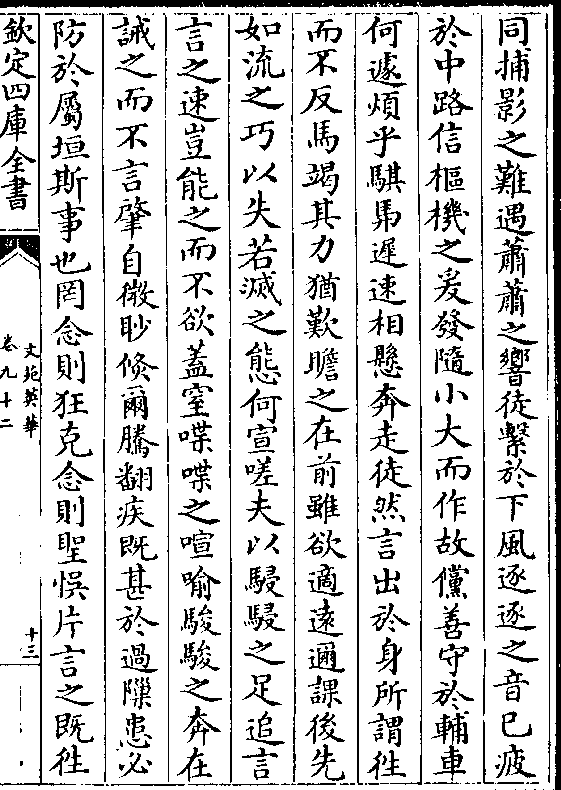 同捕影之難遇蕭蕭之響徒繫於下風逐逐之音已疲
於中路信樞機之爰發隨小大而作故儻善守於輔車
何遽煩乎騏驥遲速相懸奔走徒然言出於身所謂徃
而不反馬竭其力猶歎瞻之在前雖欲適遠邇課後先
如流之巧以失若滅之態何宣嗟夫以駸駸之足追言
言之速豈能之而不欲蓋窒喋喋之喧喻駿駿之奔在
誡之而不言肇自微眇倐爾騰翻疾既甚於過隟患必
防於屬垣斯事也罔念則狂克念則聖悮片言之既徃
欽定四庫全書
文苑英華
卷九十二
十三